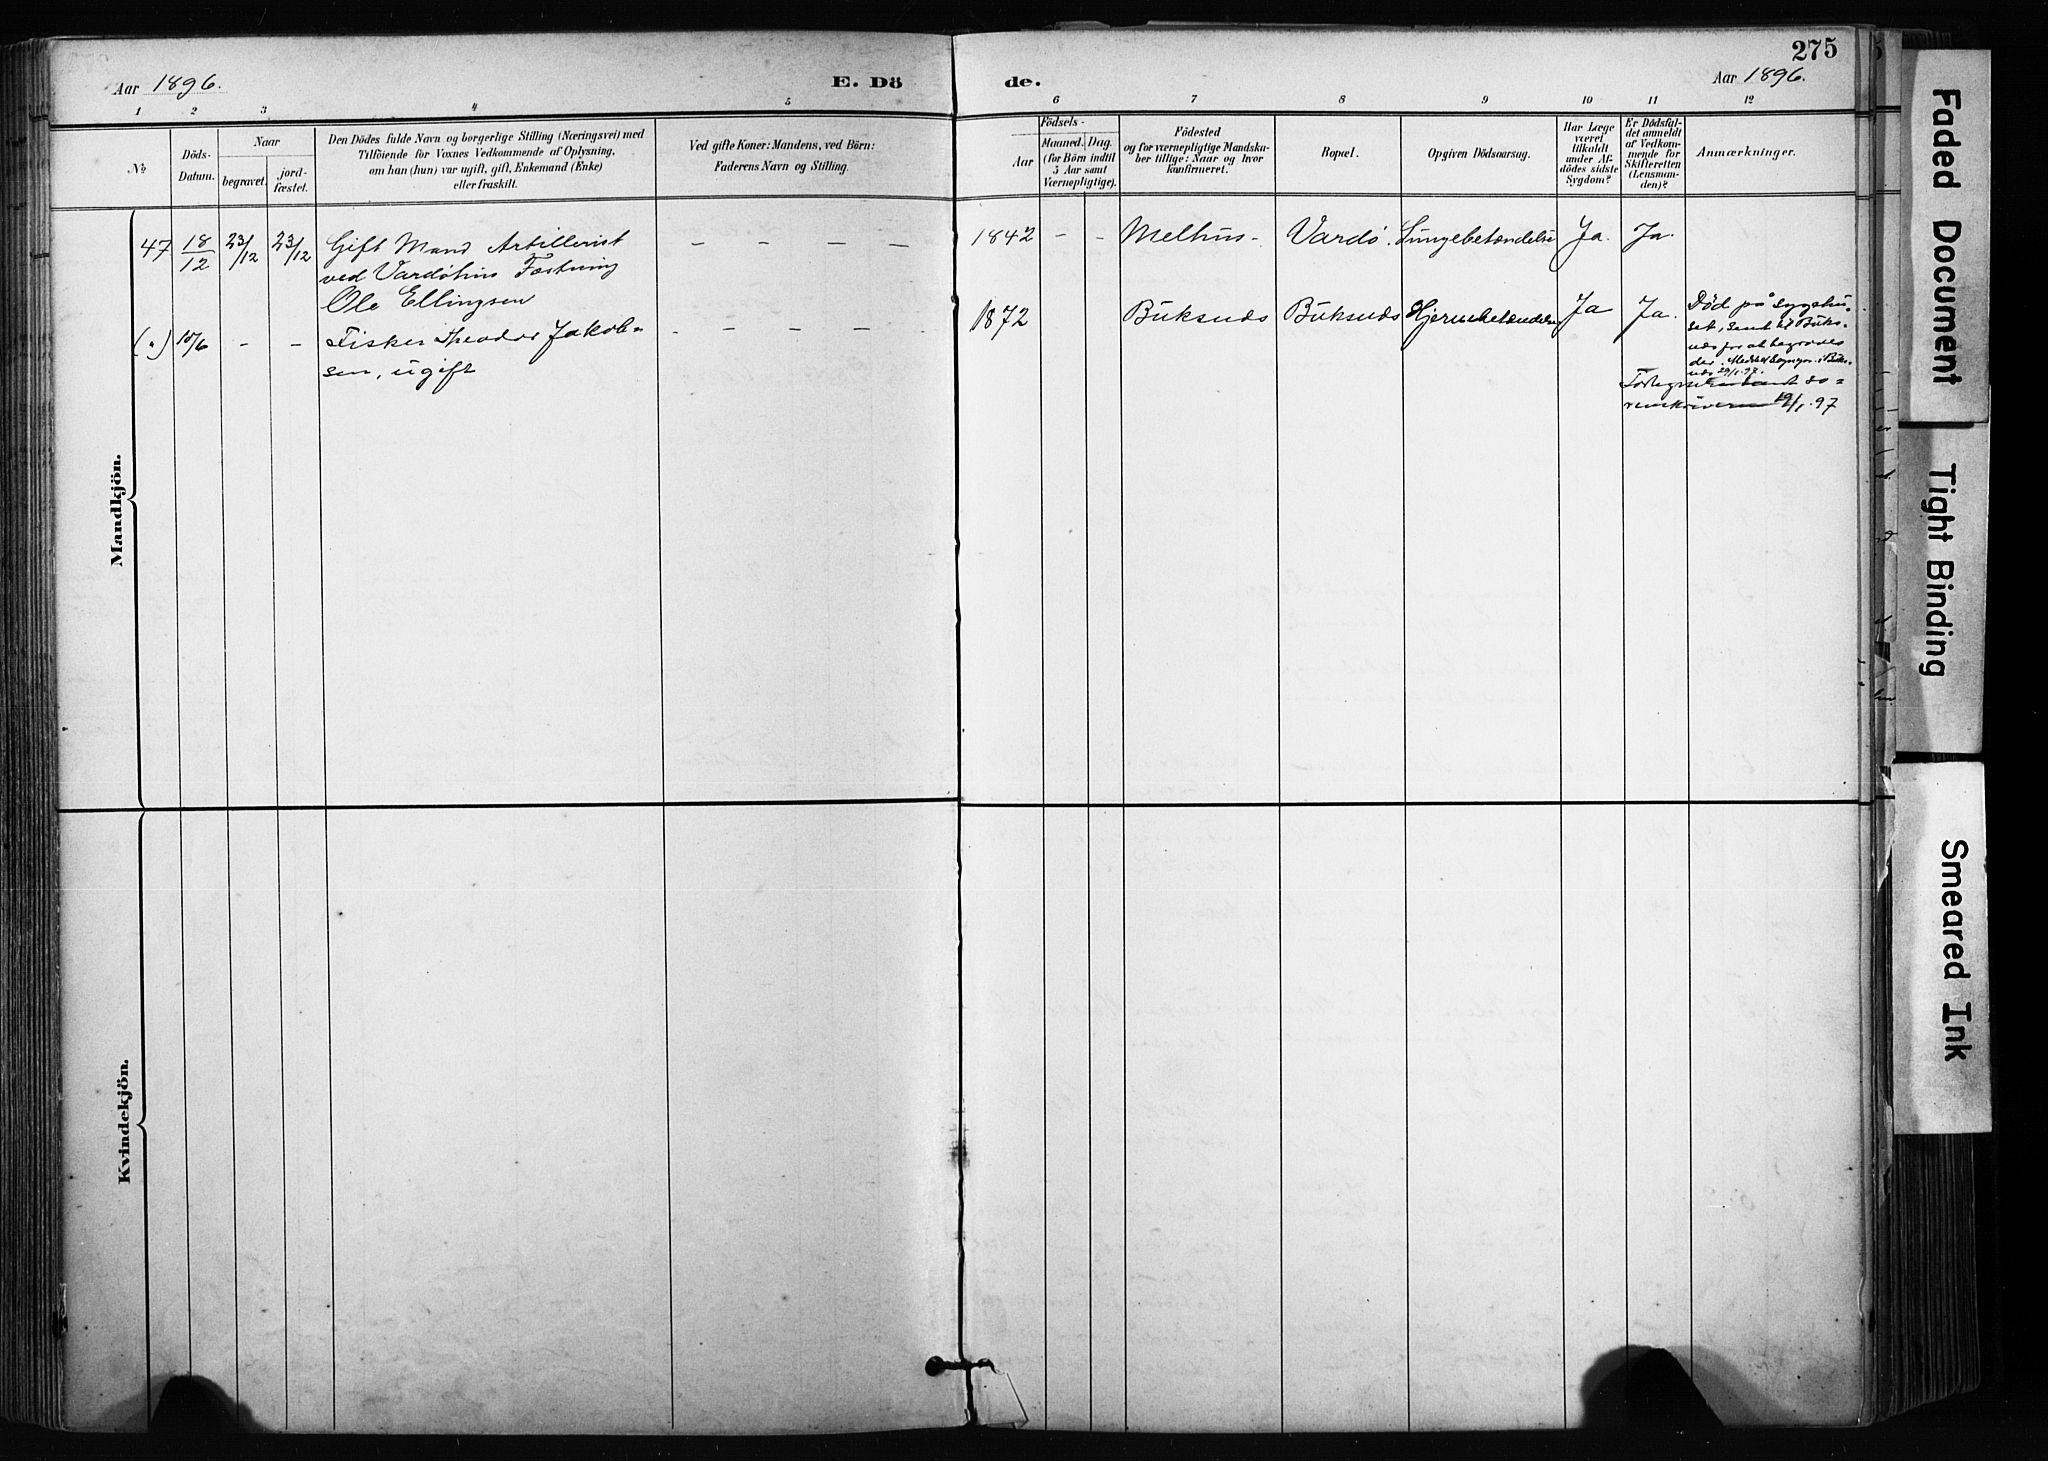 275
Aar 1896.
E. Dö
de.
Aar 1896.
1 2 3 4 5 6 7 8 9 10 11 12
№
Döds-
Datum.
Naar
begravet.
jord-
fæstet.
Den Dödes fulde Navn og borgerlige Stilling (Næringsvei) med
Tilföiende for Voxnes Vedkommende af Oplysning,
om han (hun) var ugift, gift, Enkemand (Enke)
eller fraskilt.
Ved gifte Koner: Mandens, ved Börn:
Faderens Navn og Stilling.
Födsels-
Aar
Maaned.
Dag.
(for Börn indtil
5 Aar samt
Værnepligtige).
Födested
og for værnepligtige Mandska-
ber tillige: Naar og hvor
konfirmeret.
Bopæl.
Opgiven Dödsaarsag.
Har Læge
været
tilkaldt
under Af-
dödes sidste
Sygdom?
Er Dödsfal-
det anmeldt
af Vedkom-
mende for
Skifteretten
(Lensman-
den)?
Anmærkninger.
Mandkjön.
47 18/12 23/12 23/12 Gift Mand Artillerist
ved Vardøhus Fæstning
Ole Ellingsen
– – – –
1842 – – Melhus – Vardø. Lungebetændelse Ja. Ja.
(") 10/6 – – Fisker Theodor Jakob-
sen, ugift
– – – – –
1872 Buksnæs Buksnæs Hjernebetændelse Ja Ja.
Död på sygehu-
set, sendt til Buks-
næs for at begraves
der.
29/1.97.
19/1.97
Kvindekjön.
Faded Document
Tight Binding
Smeared Ink